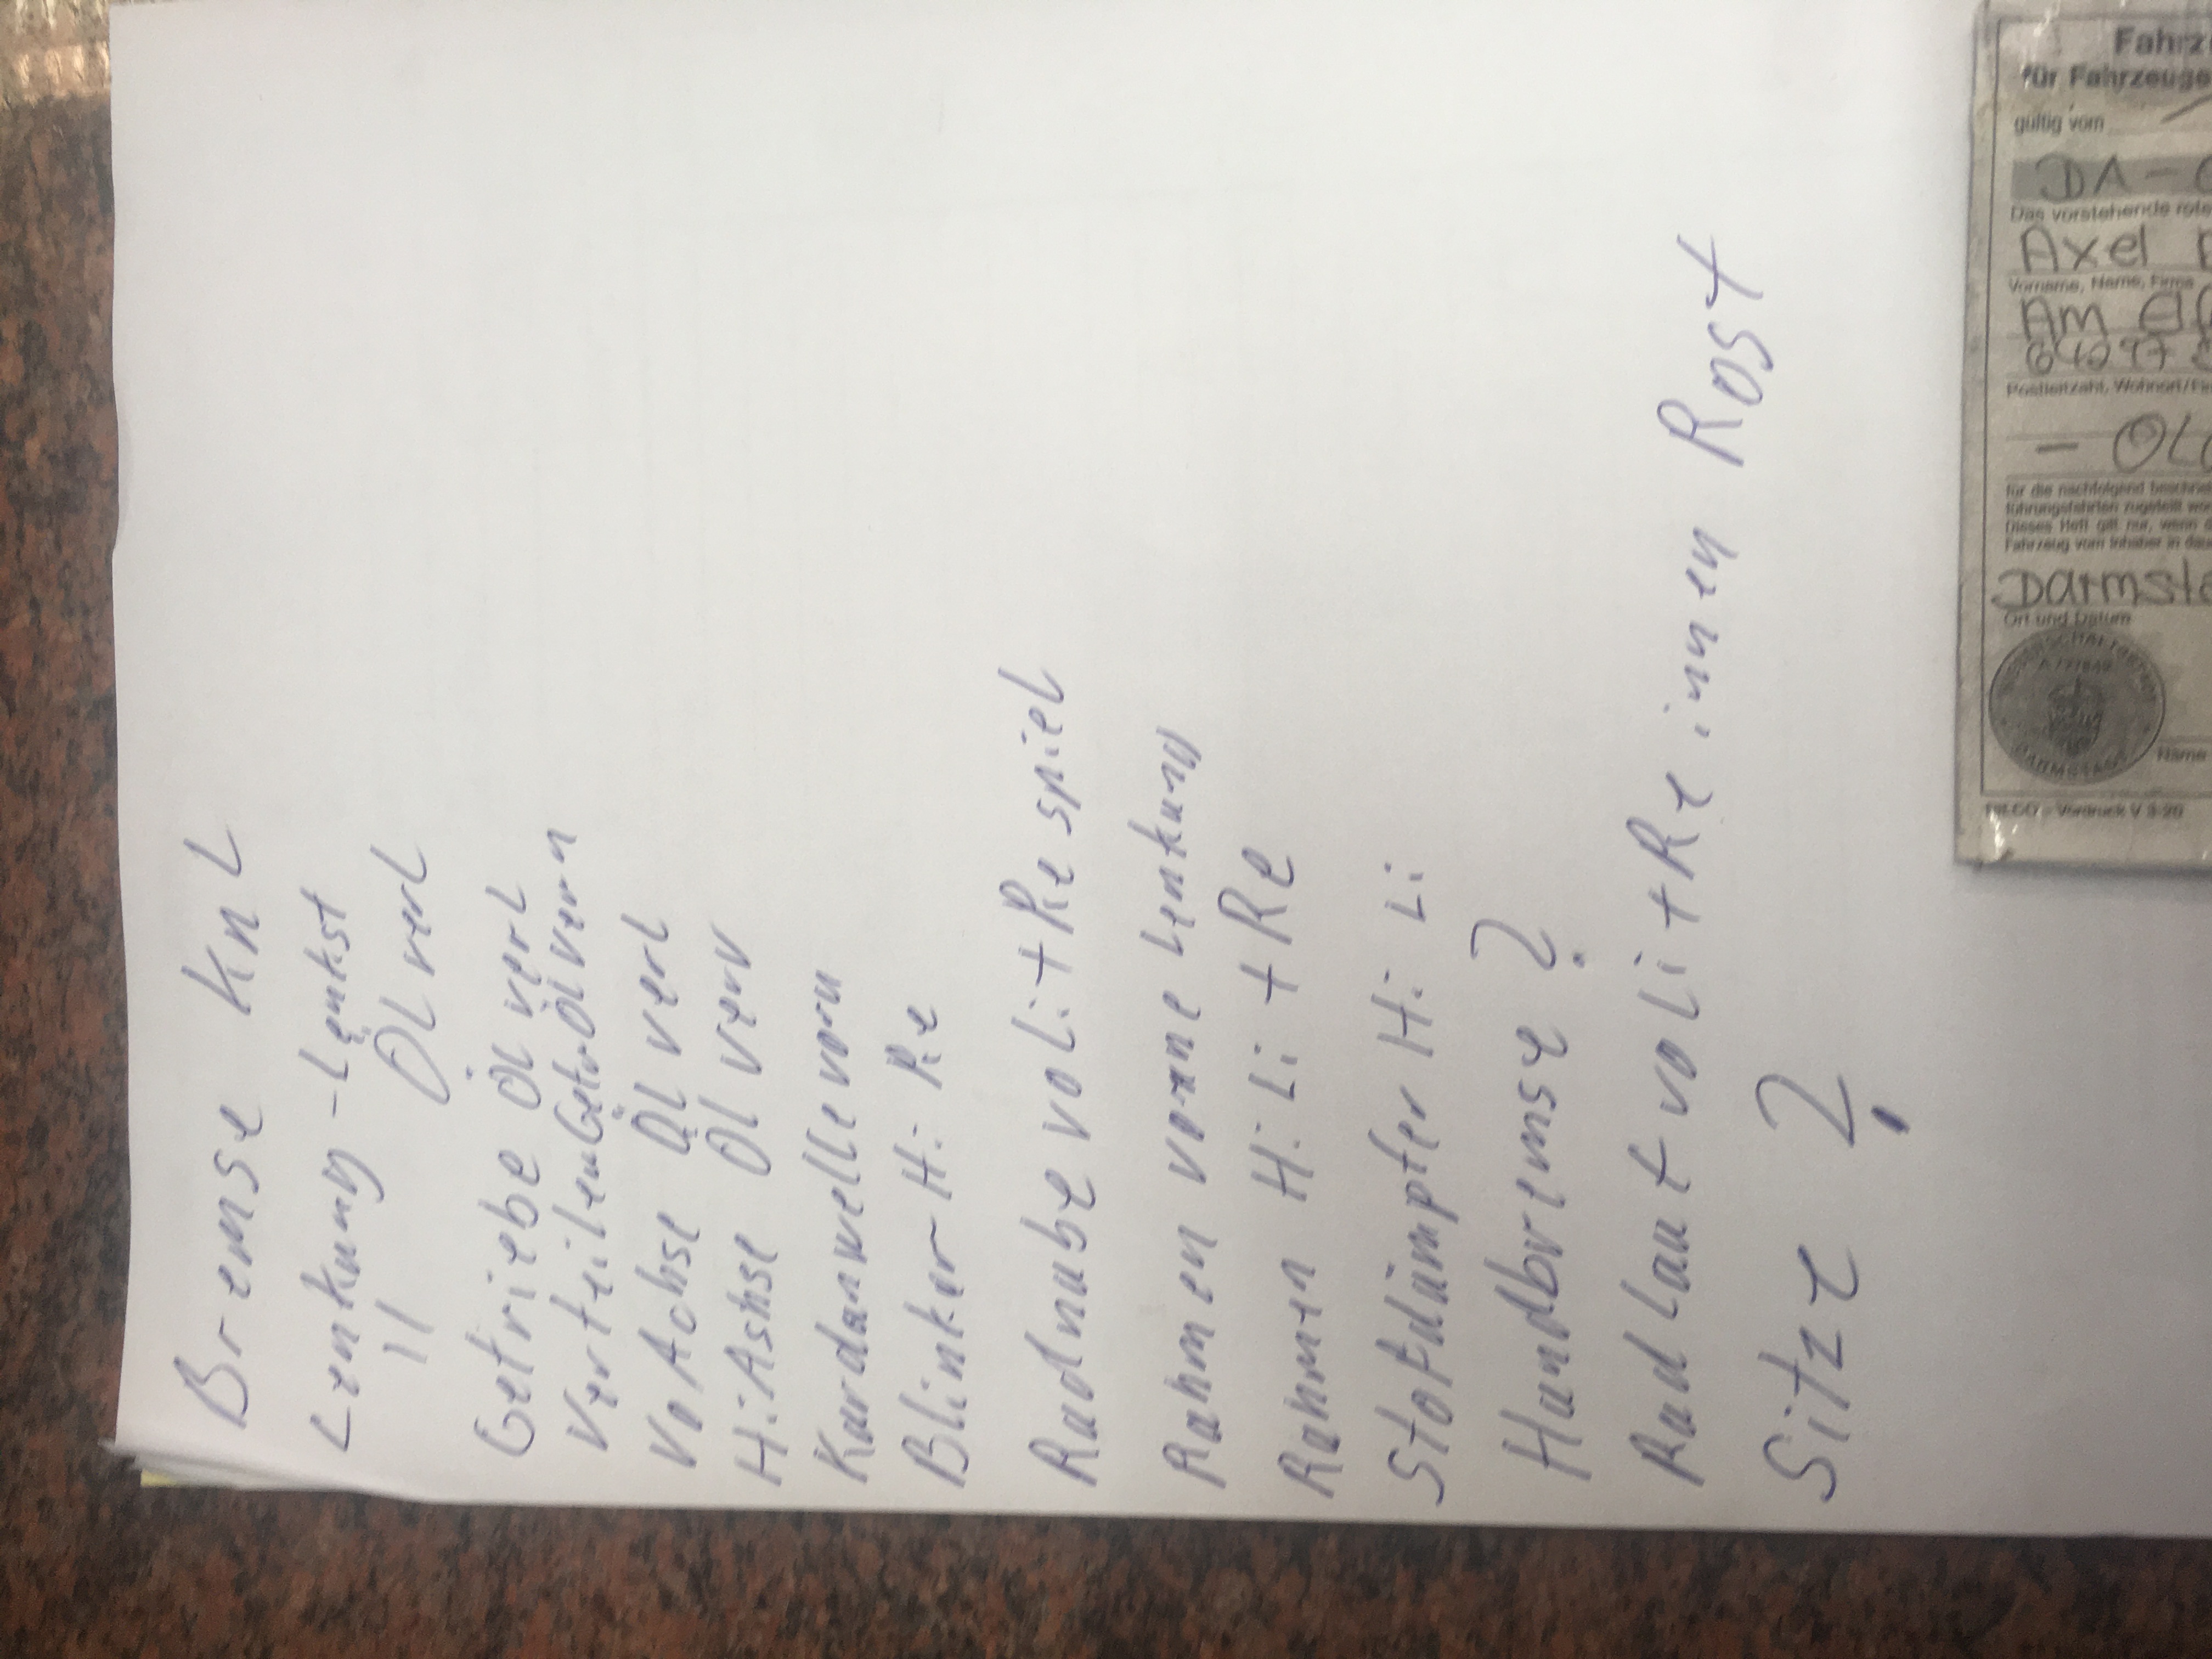 Bremse KnL
Lenkung - Lenkst
11 ÖL verL
Getriebe ÖL verL
VerteilerGetr ÖL verr
Vo Achse ÖL verL
Hi Ashse ÖL verv
Kardanwelle vorn
Blinker Hi Re
Radnabe vo Li + Re spieL
Rahmen vorne Lenkung
Rahmen Hi Li + Re
Stoßdämpfer Hi Li
Handbremse ?
Radlauf vo Li + Re innen Rost
Sitze ?
Fahrz
für Fahrzeuge
gültig vom
DA -
Das vorstehende rote
Axel
Vorname, Name, Firma
Am
64297
Postleitzahl, Wohnort/Fir
- OL
für die nachfolgend beschrie
führungsfahrten zugeteilt wor
Dieses Heft gilt nur, wenn d
Fahrzeug vom Inhaber in dau
Darmsta
Ort und Datum
DARMSTADT
Name
Vordruck V 3-20